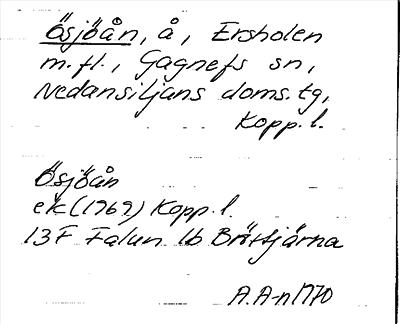 Ösjöån, å, Ersholen
m.fl., Gagnefs sn,
Nedansiljans doms.tg,
Kopp.l.
Ösjöån
ek(1969) Kopp.l.
13F Falun 1b Brötjärna
A.A-n 1970